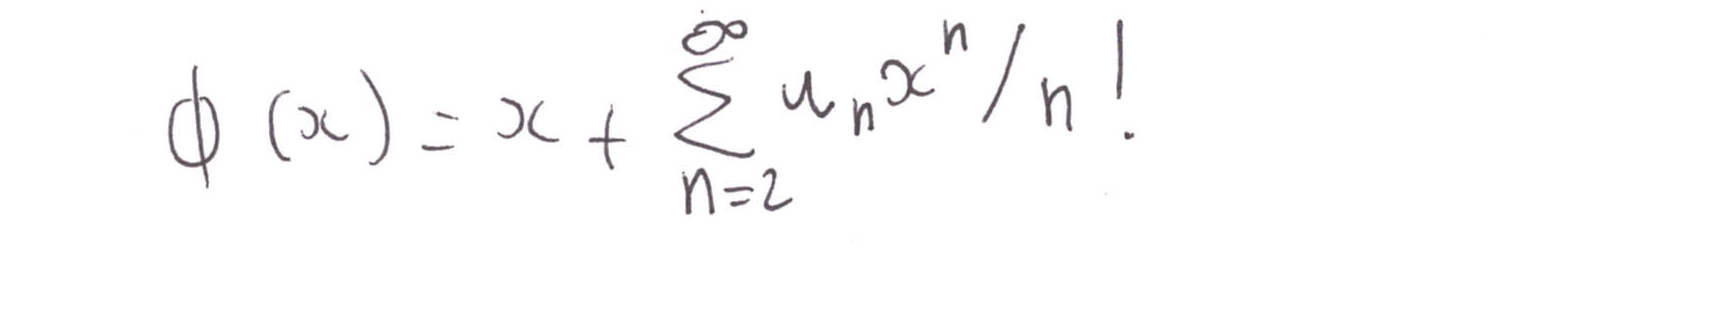 $\phi(x) = x + \sum_{n=2}^{\infty} u_n x^n / n!$